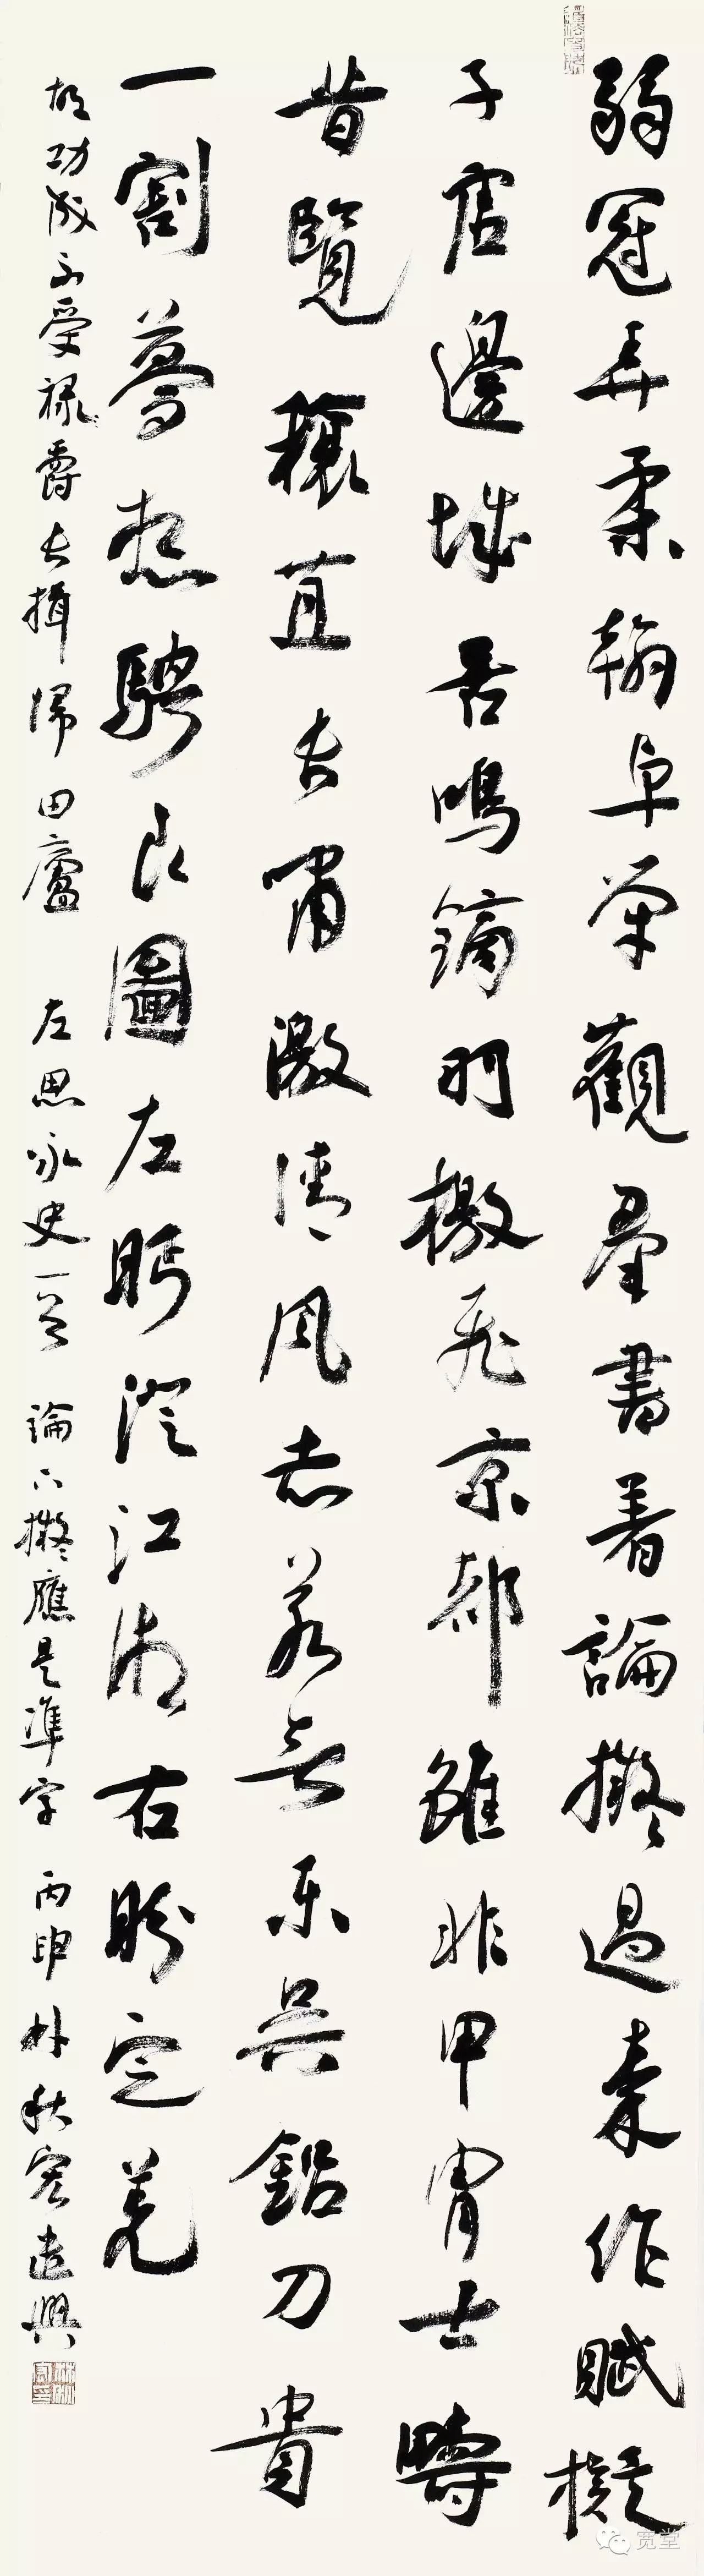 弱冠弄柔翰卓犖觀羣書著論擬過秦作賦擬
子虛邊城苦鳴鏑羽檄飛京都雖非甲胄士疇
昔覽穰苴長嘯激清風志若無東吳鉛刀貴
一割夢想騁良圖左眄澄江湘右盼定羌
胡功成不受祿爵長揖歸田廬 左思咏史一首 論下擬應是準字 丙申林秋宏遣興
宽堂